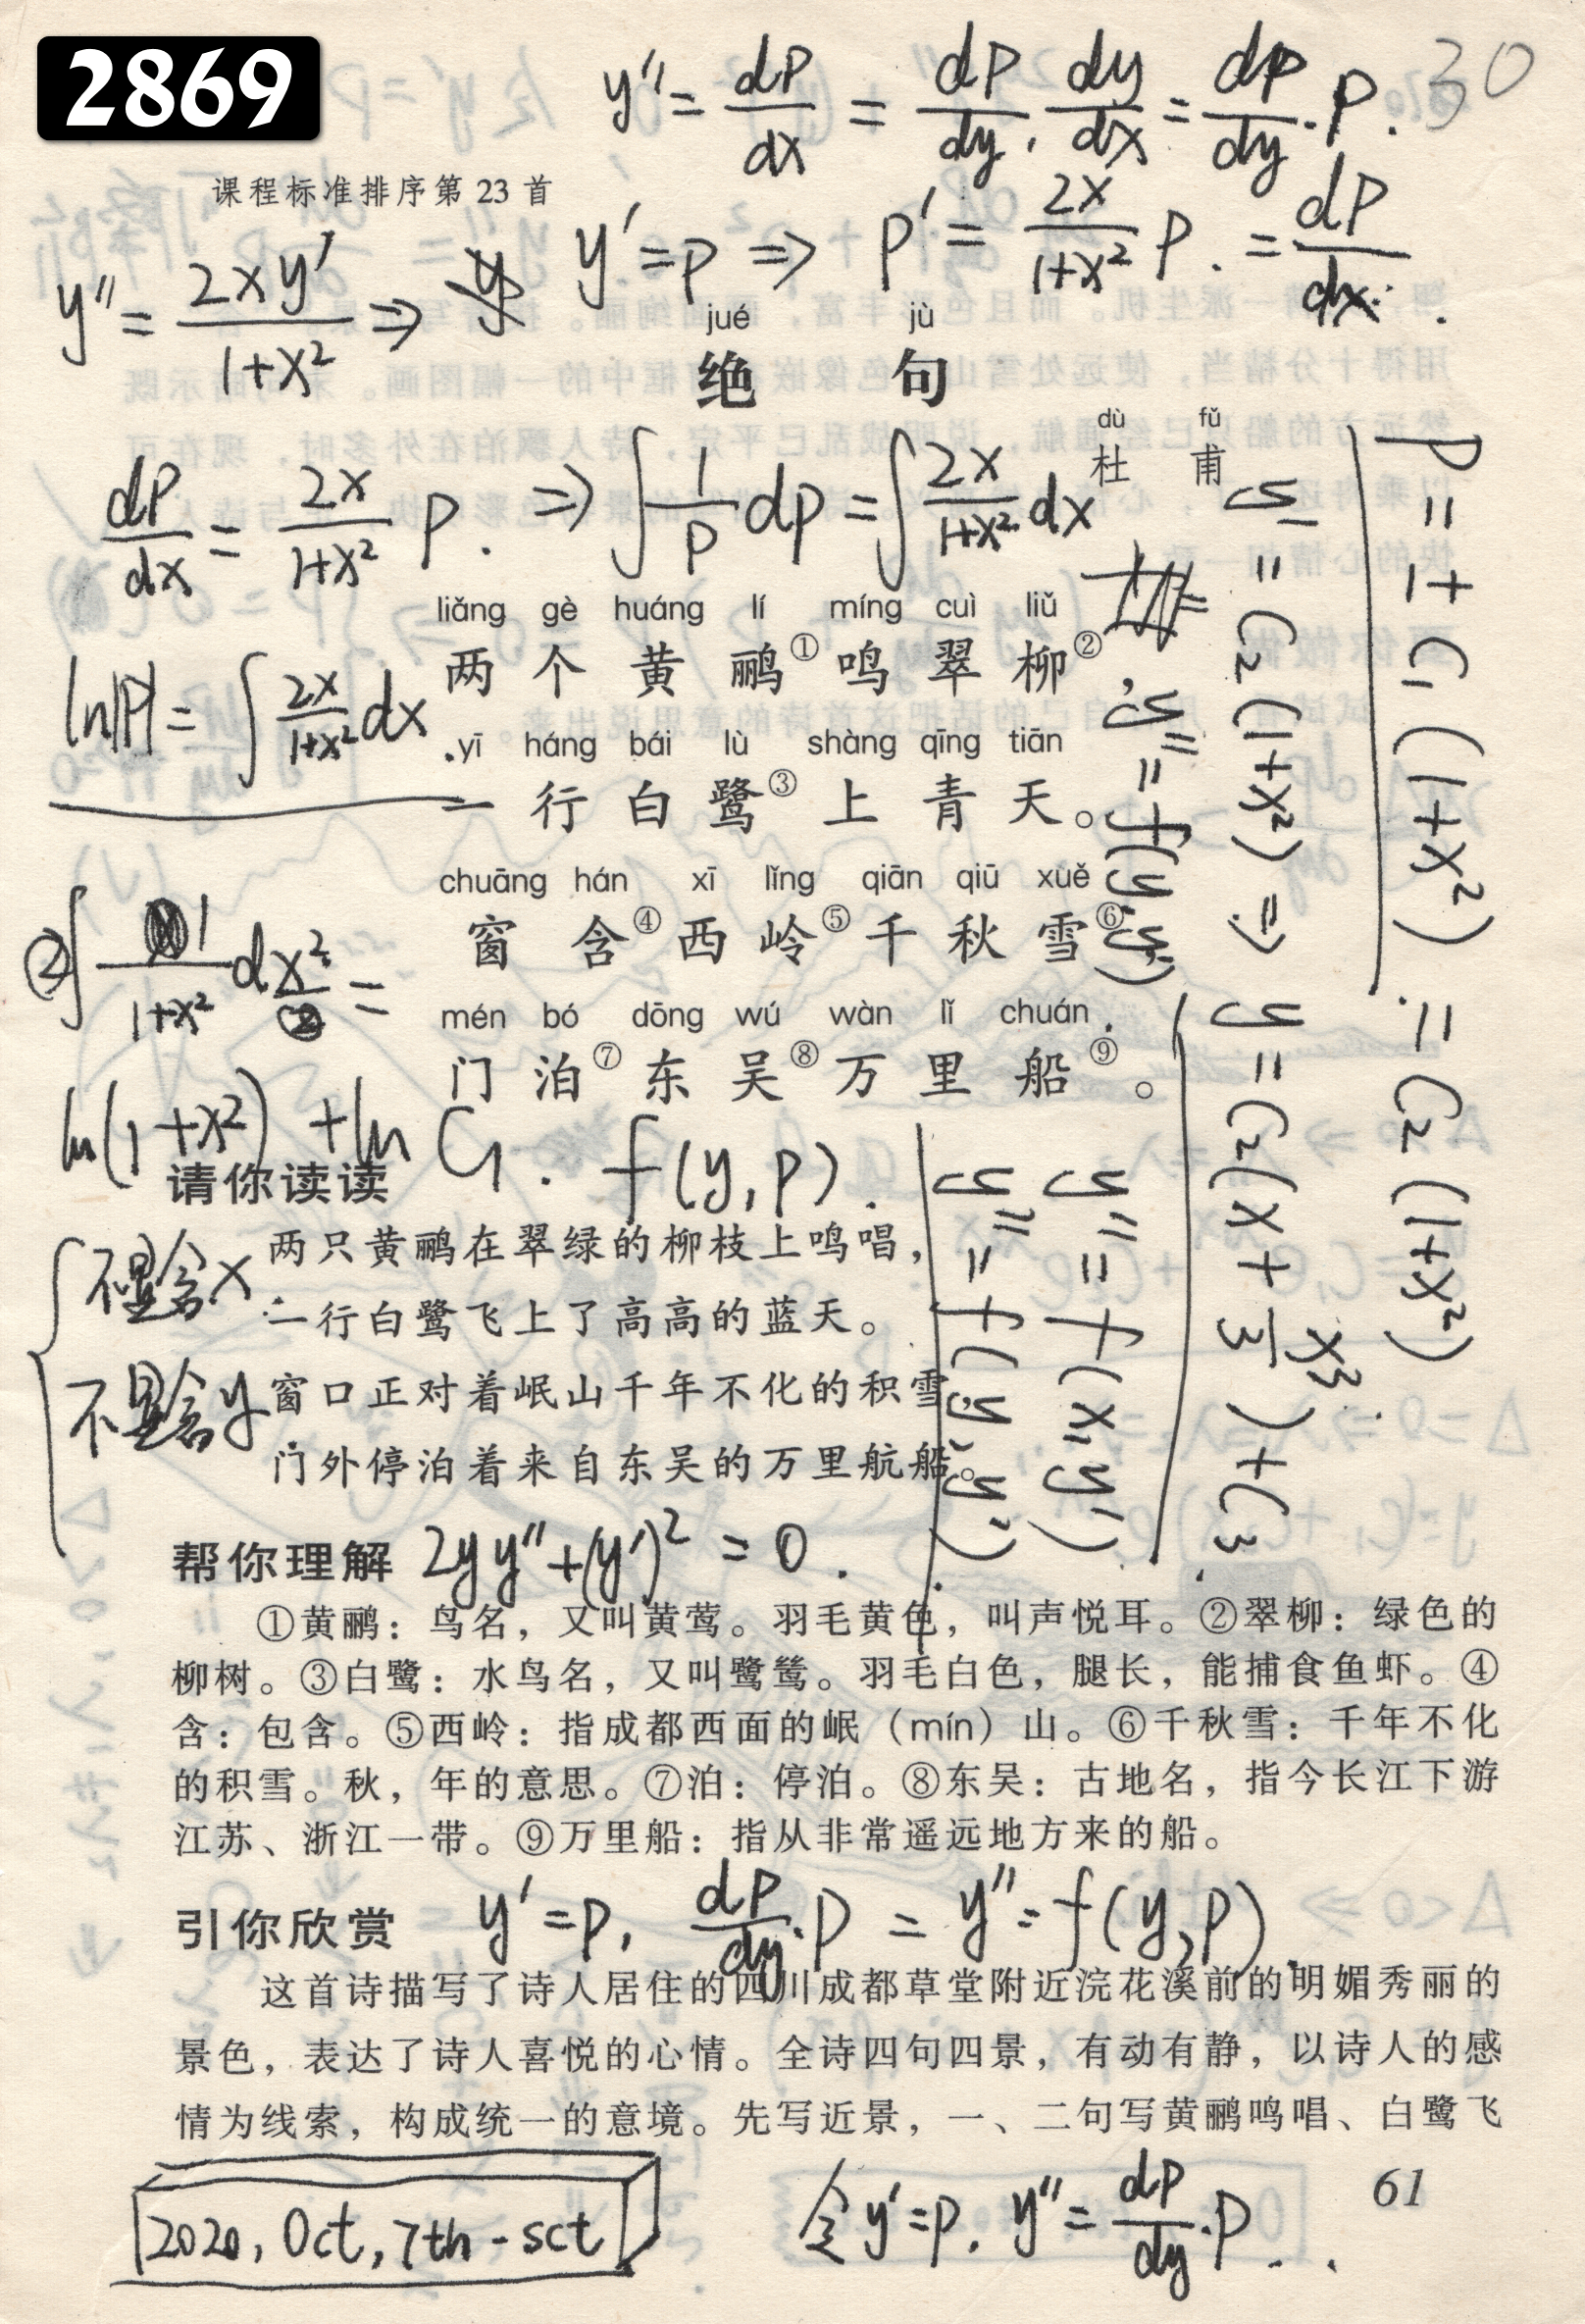 2869
y″ = dp/dx = dp/dy · dy/dx = dp/dy · p . 30
课程标准排序第 23 首
y′ = p ⇒ p′ = 2x/(1+x²) p . = dp/dx .
y″ = 2xy′/(1+x²) ⇒
jué jù
绝 句
dù fǔ
杜 甫
dp/dx = 2x/(1+x²) p . ⇒ ∫ 1/p dp = ∫ 2x/(1+x²) dx
liǎng gè huáng lí míng cuì liǔ
两 个 黄 鹂① 鸣 翠 柳②
ln|p| = ∫ 2x/(1+x²) dx .
yī háng bái lù shàng qīng tiān
一 行 白 鹭③ 上 青 天。
chuāng hán xī lǐng qiān qiū xuě
窗 含④ 西 岭⑤ 千 秋 雪⑥
② ∫ 1/(1+x²) dx² =
mén bó dōng wú wàn lǐ chuán
门 泊⑦ 东 吴⑧ 万 里 船⑨。
ln(1+x²) + ln C₁ . f(y, p) .
P = ± C₁(1+x²) . = C₂(1+x²)
y′ = C₂(1+x²) ⇒ y = C₂(x + x³/3) + C₃
y″ = f(y, y′)
y″ = f(x, y′)
y″ = f(y, y′)
请你读读
两只黄鹂在翠绿的柳枝上鸣唱，
不显含x
一行白鹭飞上了高高的蓝天。
不显含y
窗口正对着岷山千年不化的积雪，
门外停泊着来自东吴的万里航船。
帮你理解 2yy″ + (y′)² = 0 .
①黄鹂：鸟名，又叫黄莺。羽毛黄色，叫声悦耳。②翠柳：绿色的
柳树。③白鹭：水鸟名，又叫鹭鸶。羽毛白色，腿长，能捕食鱼虾。④
含：包含。⑤西岭：指成都西面的岷（mín）山。⑥千秋雪：千年不化
的积雪。秋，年的意思。⑦泊：停泊。⑧东吴：古地名，指今长江下游
江苏、浙江一带。⑨万里船：指从非常遥远地方来的船。
引你欣赏 y′ = p, dp/dy · p = y″ = f(y, p) .
这首诗描写了诗人居住的四川成都草堂附近浣花溪前的明媚秀丽的
景色，表达了诗人喜悦的心情。全诗四句四景，有动有静，以诗人的感
情为线索，构成统一的意境。先写近景，一、二句写黄鹂鸣唱、白鹭飞
61
2020, Oct, 7th - sct
令 y′ = p . y″ = dp/dy · p . .